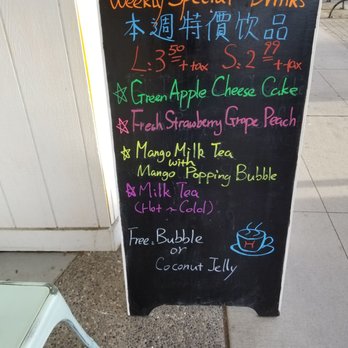 Weekly Special Drinks
本週特價飲品
L:3.50+tax S:2.99+tax
☆Green Apple Cheese Cake
☆Fresh Strawberry Grape Peach
☆Mango Milk Tea
with
Mango Popping Bubble
☆Milk Tea
(Hot ~ Cold)
Free: Bubble
or
Coconut Jelly
H